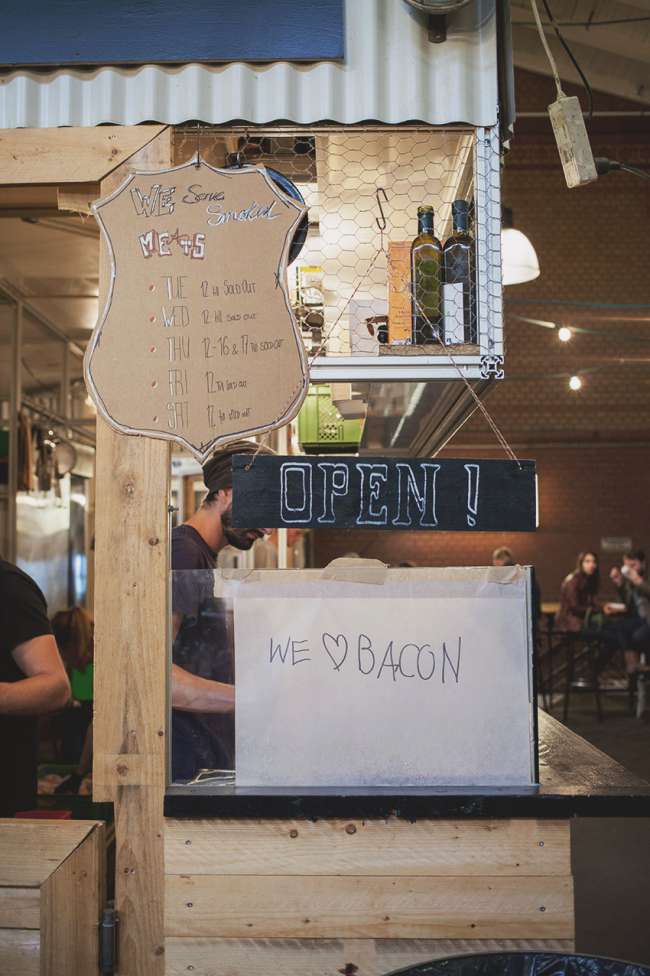 WE Serve
Smokid
MEATS
TUE 12 till SOLD OUT
WED 12 till SOLD OUT
THU 12-16 & 17 till SOLD OUT
FRI 12 till SOLD OUT
SAT 12 till SOLD OUT
OPEN!
WE ♡ BACON